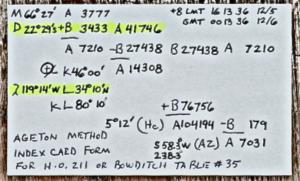 M 66°27' A 3777 +8 LMT 16 13 36 12/5
D 22°29'S +B 3433 A 41746 GMT 00 13 36 12/6
A 7210 -B 27438 B 27438 A 7210
K 46°00' A 14308
λ 119°14'W L 34°10'N
K~L 80°10' +B 76756
5°12' (Hc) A 104194 -B 179
AGETON METHOD S 58.3°W (AZ) A 7031
INDEX CARD FORM 238.3°
FOR H.O. 211 OR BOWDITCH TABLE #35